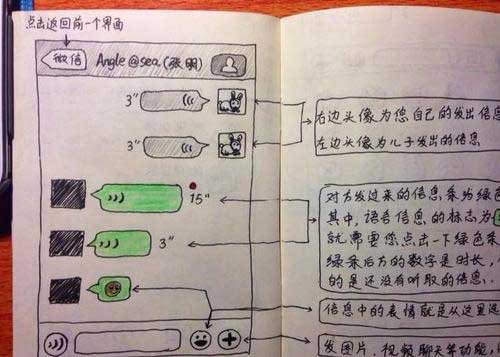 点击返回前一个界面
微信 Angle@sea(张明)
3"
3"
15"
3"
右边头像为您自己的发出信息
左边头像为儿子发出的信息
对方发过来的信息条为绿色
其中，语音信息的标志为
就需要您点击一下绿色条
绿条后方的数字是时长，
的是还没有听取的信息、
信息中的表情就是从这里选
发图片、视频聊天等功能，